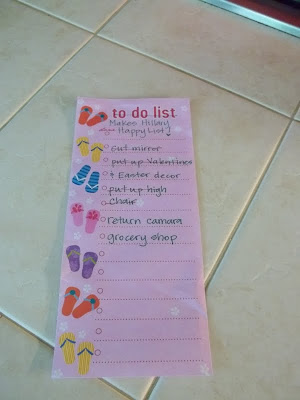 to do list
Makes Hillary
Happy List!
cut mirror
put up Valentines
& Easter decor
put up high
chair
return camara
grocery shop